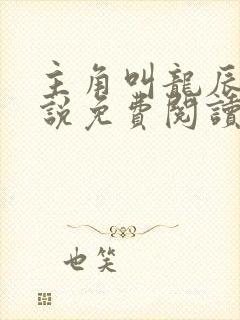 主角叫龍辰
說免費閱讀
也笑